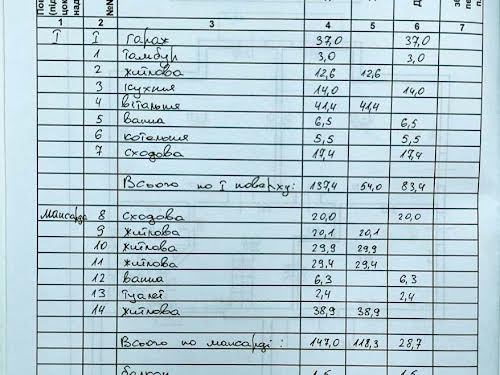 По
(під
цок
над
№№
1 2 3 4 5 6 7
І І гараж 37,0 37,0
1 тамбур 3,0 3,0
2 житлова 12,6 12,6
3 кухння 14,0 14,0
4 вітальня 41,4 41,4
5 ванна 6,5 6,5
6 котельня 5,5 5,5
7 сходова 17,4 17,4
Всього по І поверху: 137,4 54,0 83,4
мансарда 8 сходова 20,0 20,0
9 житлова 20,1 20,1
10 житлова 29,9 29,9
11 житлова 29,4 29,4
12 ванна 6,3 6,3
13 туалет 2,4 2,4
14 житлова 38,9 38,9
Всього по мансарді: 147,0 118,3 28,7
балкон 1,5 1,5